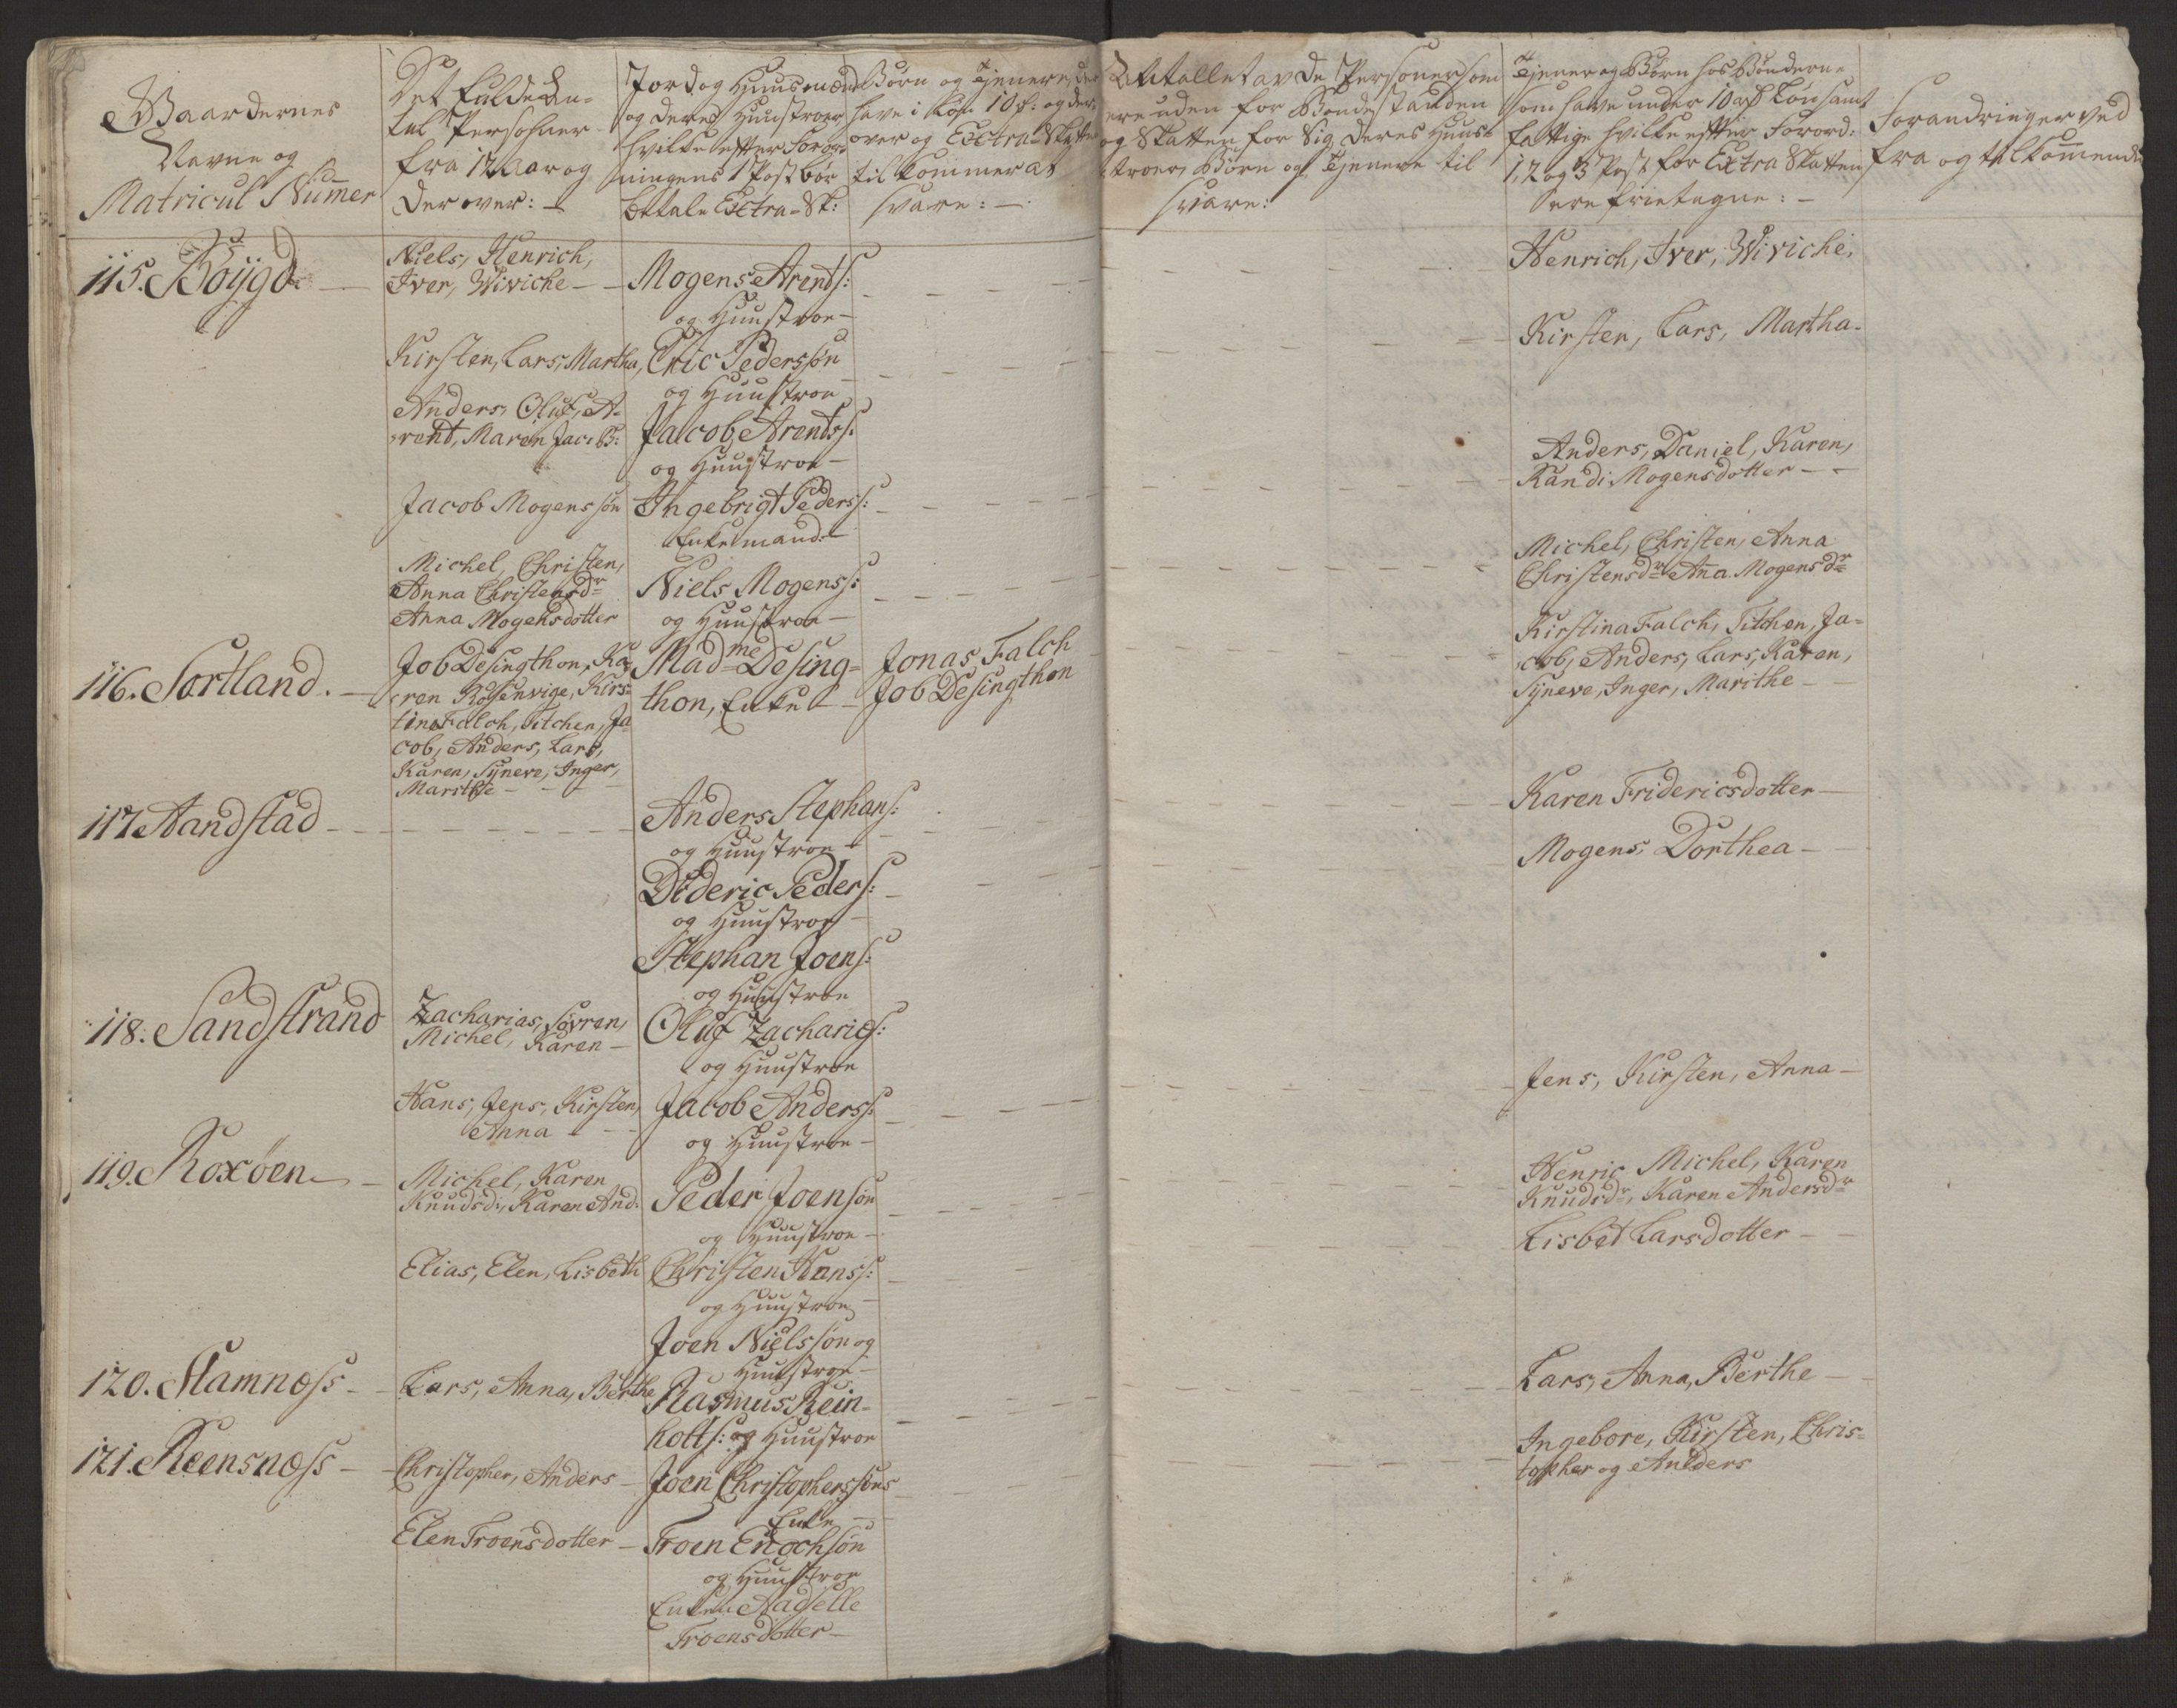 Gaardernes
Navne og
Matricul Numer
Det fulde An-
tal Persohner
fra 12 Aar og
der over:
Jord og Huusmænd
og deres Huustroer
hvilke efter Forord-
ningens 1 Post bør
betale Extra-Sk:
Børn og Tjenere, der
have i Løn 10 rd: og der-
over og Extra-Skatten
tilkommer at
svare:
Antallet av de Personer som
ere uden for Bondestanden
og Skatten for Sig deres Huus-
troer, Børn og Tjenere til
svare:
Tjenere og Børn hos Bønderne
som have under 10 rd Løn samt
fattige hvilke efter Forord:
1, 2 og 3 Post for Extra Skatten
ere frietagne:
Forandringer ved
fra og tilkommende
115. Böijgd
Niels, Henrich,
Iver, Wiviche
Mogens Arents:
og Huustroe
Henrich, Iver, Wiviche,
Kirsten, Lars, Martha,
Eric Pederssøn
og Huustroe
Kirsten, Lars, Martha
Anders, Oluf, A-
rent, Maren Jac: B:
Jacob Arentss:
og Huustroe
Anders, Daniel, Karen,
Randi Mogensdotter
Jacob Mogenssøn
Ingebrigt Peders:
Enkemand
Michel, Christen,
Anna Christensdr
Anna Mogensdotter
Niels Mogenss:
og Huustroe
Michel, Christen, Anna
Christensdr Aña Mogensdr
116. Sortland.
Job Desingthon, Ka-
ren Rosenvige, Kirs-
tina Falch, Titchen, Ja-
cob, Anders, Lars,
Karen, Sÿneve, Inger,
Marithe
Madme Desing-
thon, Enke
Jonas Falch
Job Desingthon
Kirstina Falch, Titthen, Ja-
cob, Anders, Lars, Karen,
Sÿneve, Inger, Marithe
117 Aandstad
Anders Stephans:
og Huustroe
Karen Fridericsdotter
Dideric Peders:
og Huustroe
Mogens, Dorthea
Stephan Joens:
og Huustroe
118. Sandstrand
Zacharias, Søvren,
Michel, Karen
Oluf Zacharies:
og Huustroe
Hans, Jens, Kirsten,
Anna
Jacob Anderss:
og Huustroe
Jens, Kirsten, Anna
119. Roxøen
Michel, Karen
Knudsd:, Karen And:
Peder Joensøn
og Huustroe
Henric Michel, Karen
Knudsdr, Karen Andersdr
Elias, Elen, Lisbeth
Christen Hanss:
og Huustroe
Lisbet Larsdotter
Joen Nielssøn og
Huustroe
120. Stamnæss
Lars, Anna, Berthe
Rasmus Rein-
holts: og Huustroe
Lars, Anna, Berthe
121. Reensnæss
Christopher, Anders
Joen Christopherssøns
Enke
Ingebore, Kirsten, Chris-
topher og Anders
Elen Troensdotter
Troen Enochsøn
og Huustroe
Enken Aadselle
Troensdotter